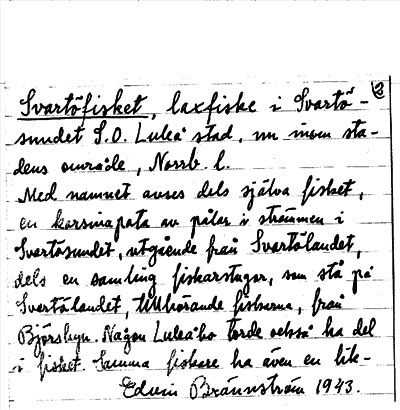 ②
Svartöfisket, laxfiske i Svartö-
sundet S.O. Luleå stad, nu inom sta-
dens område, Norrb. l.
Med namnet avses dels själva fisket,
en karsinapata av pålar i strömmen i
Svartösundet, utgående från Svartölandet,
dels en samling fiskarstugor, som stå på
Svartölandet, tillhörande fiskarna, från
Björsbyn. Någon Luleåbo torde också ha del
i fisket. Samma fiskare ha även en lik-
Edvin Brännström 1943.